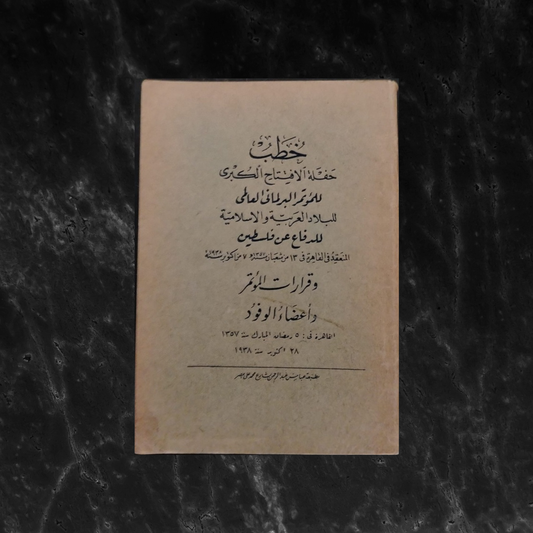 خُطَبُ
حفلة الافتتاح الكبرى
للمؤتمر البرلماني العالمي
للبلاد العربية والاسلامية
للدفاع عن فلسطين
المنعقد في القاهرة في ١٣ من شعبان سنة ١٣٥٧ و ٧ من اكتوبر سنة ١٩٣٨
وقرارات المؤتمر
وأعضاء الوفود
القاهرة في : ٥ رمضان المبارك سنة ١٣٥٧
٢٨ اكتوبر سنة ١٩٣٨
مطبعة عباس عبد الرحمن بشارع محمد علي بمصر